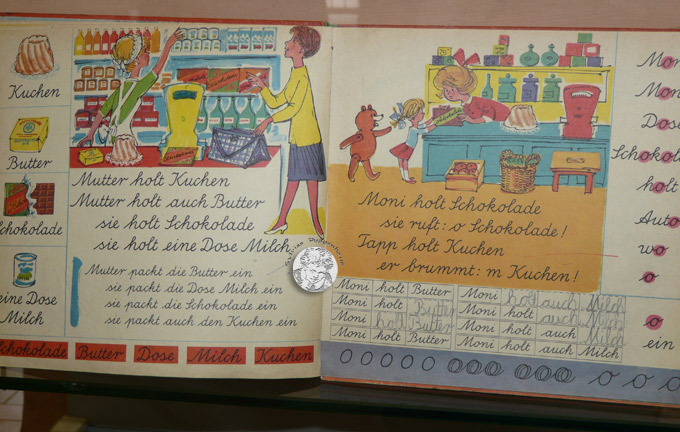 Kuchen
Butter
Schokolade
eine Dose
Milch
Mutter holt Kuchen
Mutter holt auch Butter
sie holt Schokolade
sie holt eine Dose Milch
Mutter packt die Butter ein
sie packt die Dose Milch ein
sie packt die Schokolade ein
sie packt auch den Kuchen ein
Schokolade Butter Dose Milch Kuchen
Moni holt Schokolade
sie ruft: o Schokolade!
Tapp holt Kuchen
er brummt: m Kuchen!
Moni holt Butter
Moni holt Butter
Moni holt Butter
Moni holt Butter
Moni holt auch Milch
Moni holt auch Milch
Moni holt auch Milch
Moni holt auch Milch
o o o o o
Moni
Dose
Schokol
holt
Auto
wo
o
o
ein